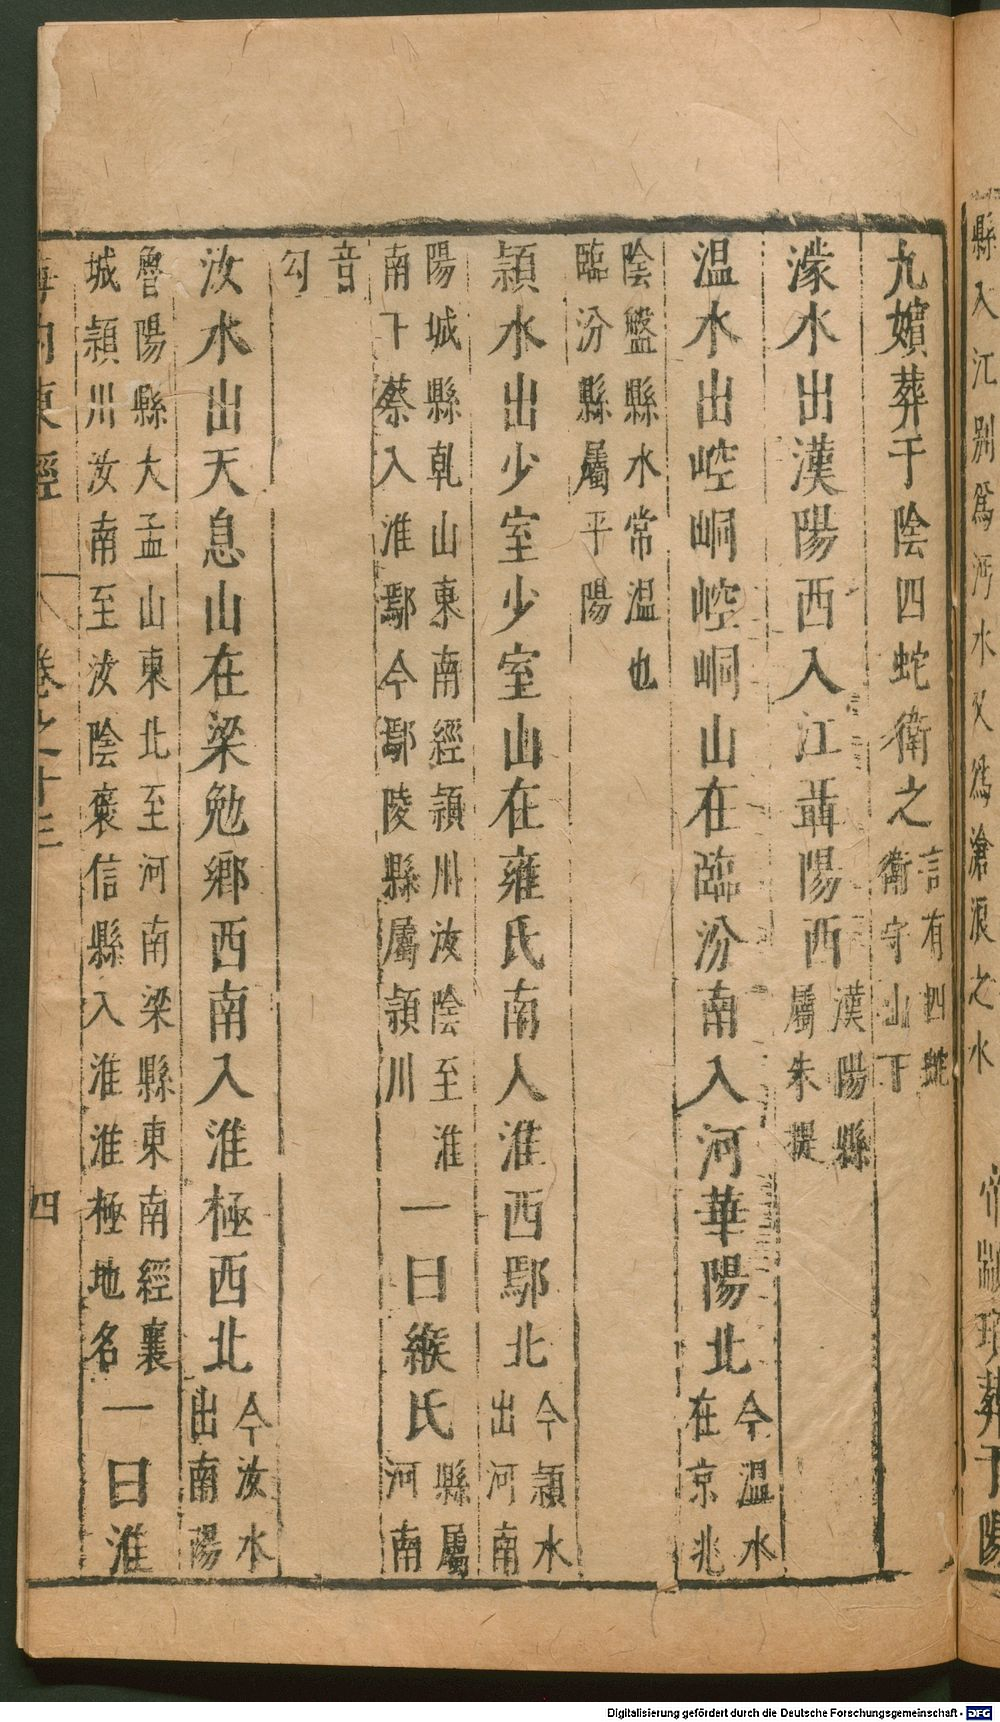 縣入江別爲沔水又爲滄浪之水
葬于陽
九嬪葬于陰四蛇衛之
言有四蛇
衛守山下
濛水出漢陽西入江聶陽西
漢陽縣
屬朱提
温水出崆峒崆峒山在臨汾南入河華陽北
今温水
在京兆
陰盤縣水常温也
臨汾縣屬平陽
潁水出少室少室山在雍氏南入淮西鄢北
今潁水
出河南
陽城縣乾山東南經潁川汝陰至淮
南下蔡入淮鄢今鄢陵縣屬潁川
一曰緱氏
縣屬
河南
音
勾
汝水出天息山在梁勉鄉西南入淮極西北
今汝水
出南陽
魯陽縣大孟山東北至河南梁縣東南經襄
城潁川汝南至汝陰襃信縣入淮淮極地名
一曰淮
海內東經 卷之十三 四
Digitalisierung gefördert durch die Deutsche Forschungsgemeinschaft - DFG